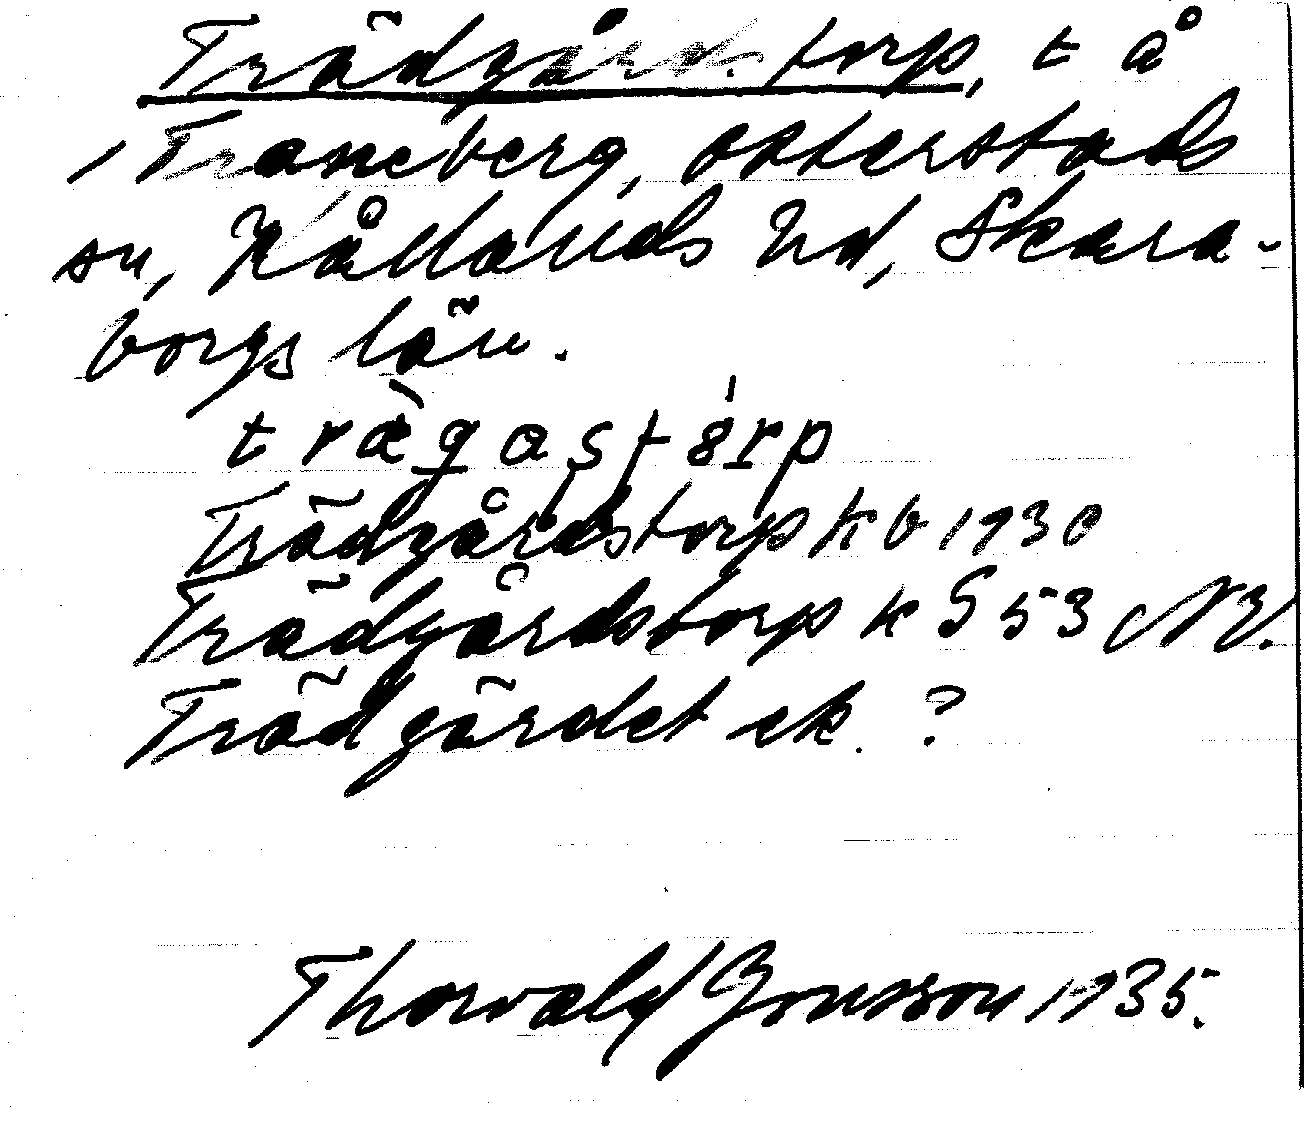 Trädgårdstorp, t å
i Traneberg, Otterstads
sn, Kållands hd, Skara-
borgs län.
trægastörp
Trädgårdstorp kb 1930
Trädgårdstorp k S 53 NV.
Trädgärdet ek. ?
Thorvald Jonsson 1935.